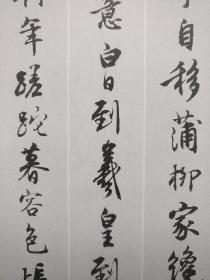 自移蒲柳家纔
意白日到羲皇到
年蹉跎暮容色悵